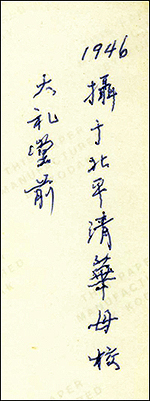 1946
攝于北平清華母校
大礼堂前